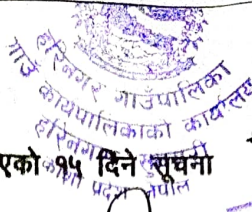 हरिनगर गाउँपालिका
गाउँ कार्यपालिकाको कार्यालय
हरिनगर, सुनसरी
एको १५ दिने सूचना
कोशी प्रदेश, नेपाल